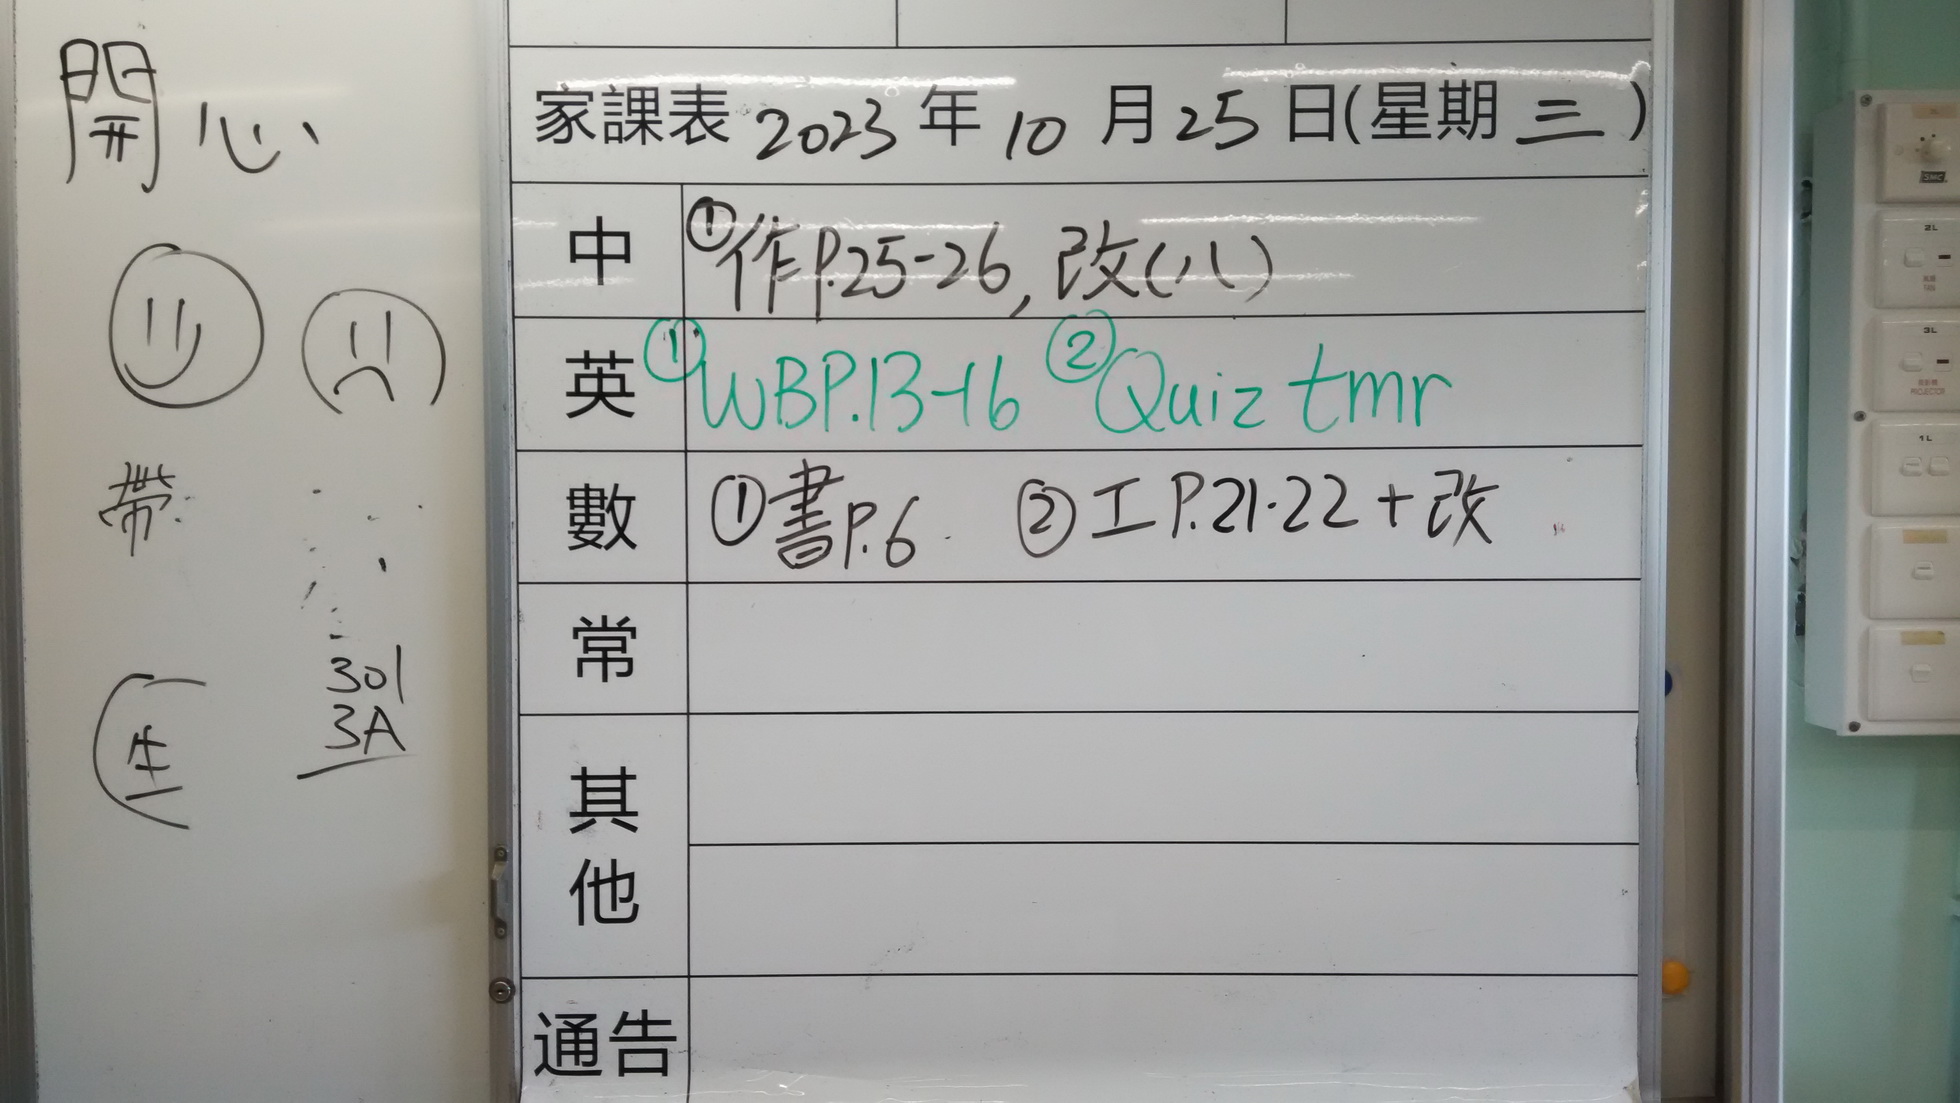 開心
帶
301
3A
生
家課表 2023 年 10 月 25 日(星期 三 )
中 ①作P.25-26, 改(八)
英 ①WBP.13-16 ②Quiz tmr
數 ①書P.6 ②工P.21-22 + 改
常
其他
通告
2L
3L
PROJECTOR
1L